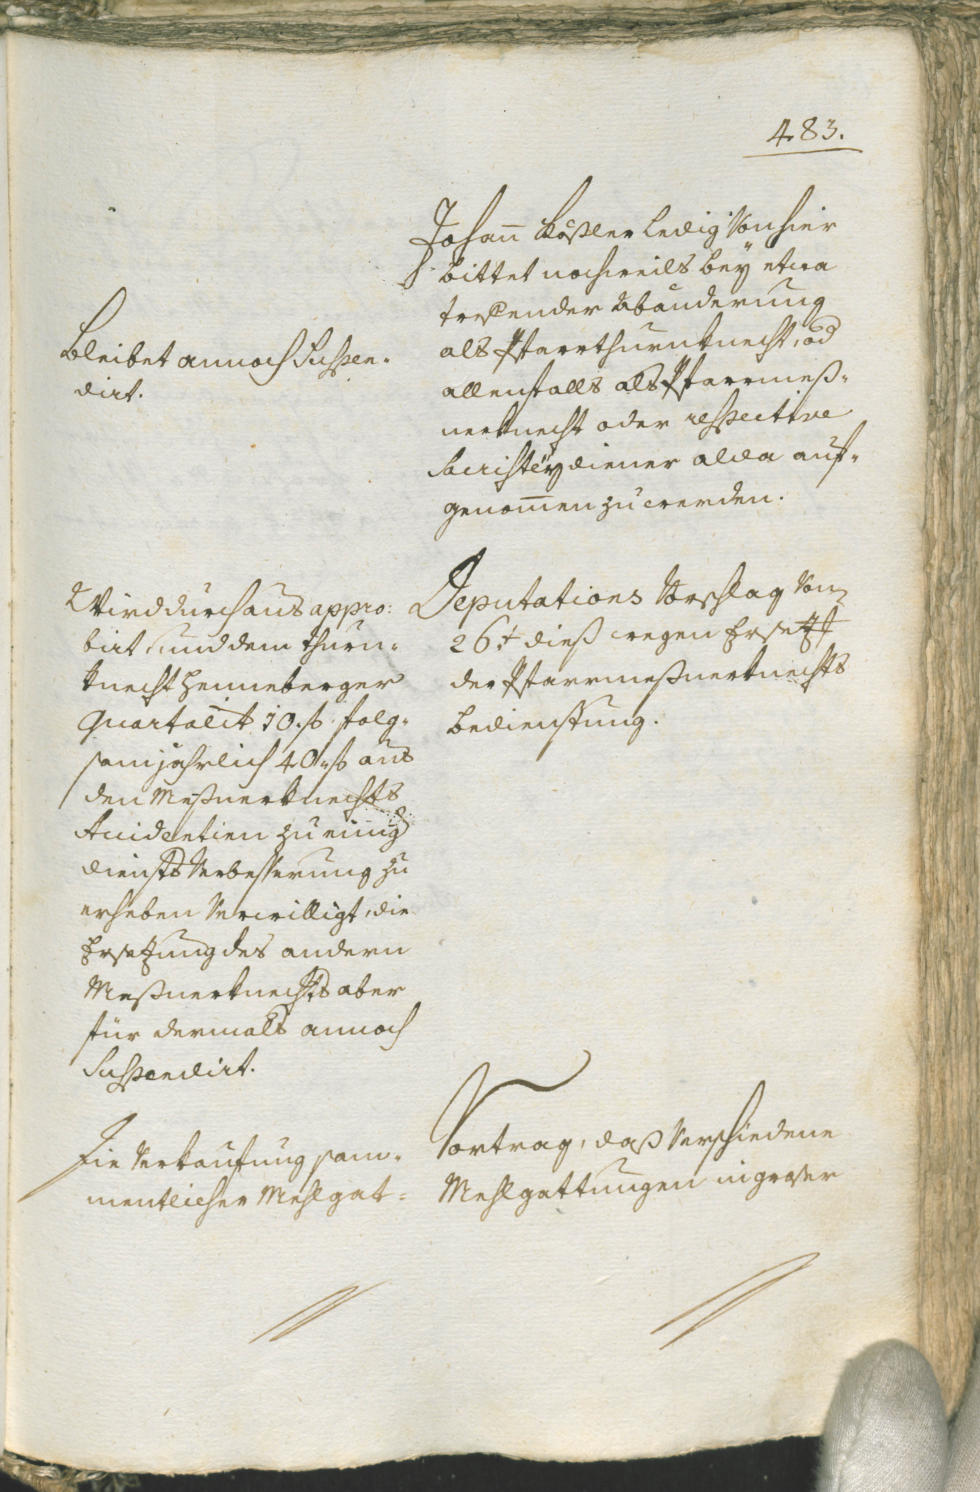 483.
Johann Kößler ledig von hier
bittet nochmals bey etwa
treffender Abänderung
als Pfarrthurnknecht, od
allenfalls als Pfarrmeß-
nerknecht oder respective
Sacristeydiener alda auf-
genommen zu werden.
Bleibet annoch Suspen-
dirt.
Deputations Vorschlag vom
26.t dieß wegen Ersetz
der Pfarrmeßnerknechts
bedienstung.
Wird durchaus appro:
birt, und dem Thurn-
knecht Henneberger
Quartalit 10. f. folg-
sam jährlich 40. f. aus
den Meßnerknechts
Accidentien zu einig
diensts Verbesserung zu
erheben verwilligt, die
Ersetzung des andern
Meßnerknechts aber
für dermals annoch
Suspendirt.
Vortrag, daß verschiedene
Mehlgattungen in groser
Die Verkaufung sam-
mentlicher Mehlgat-